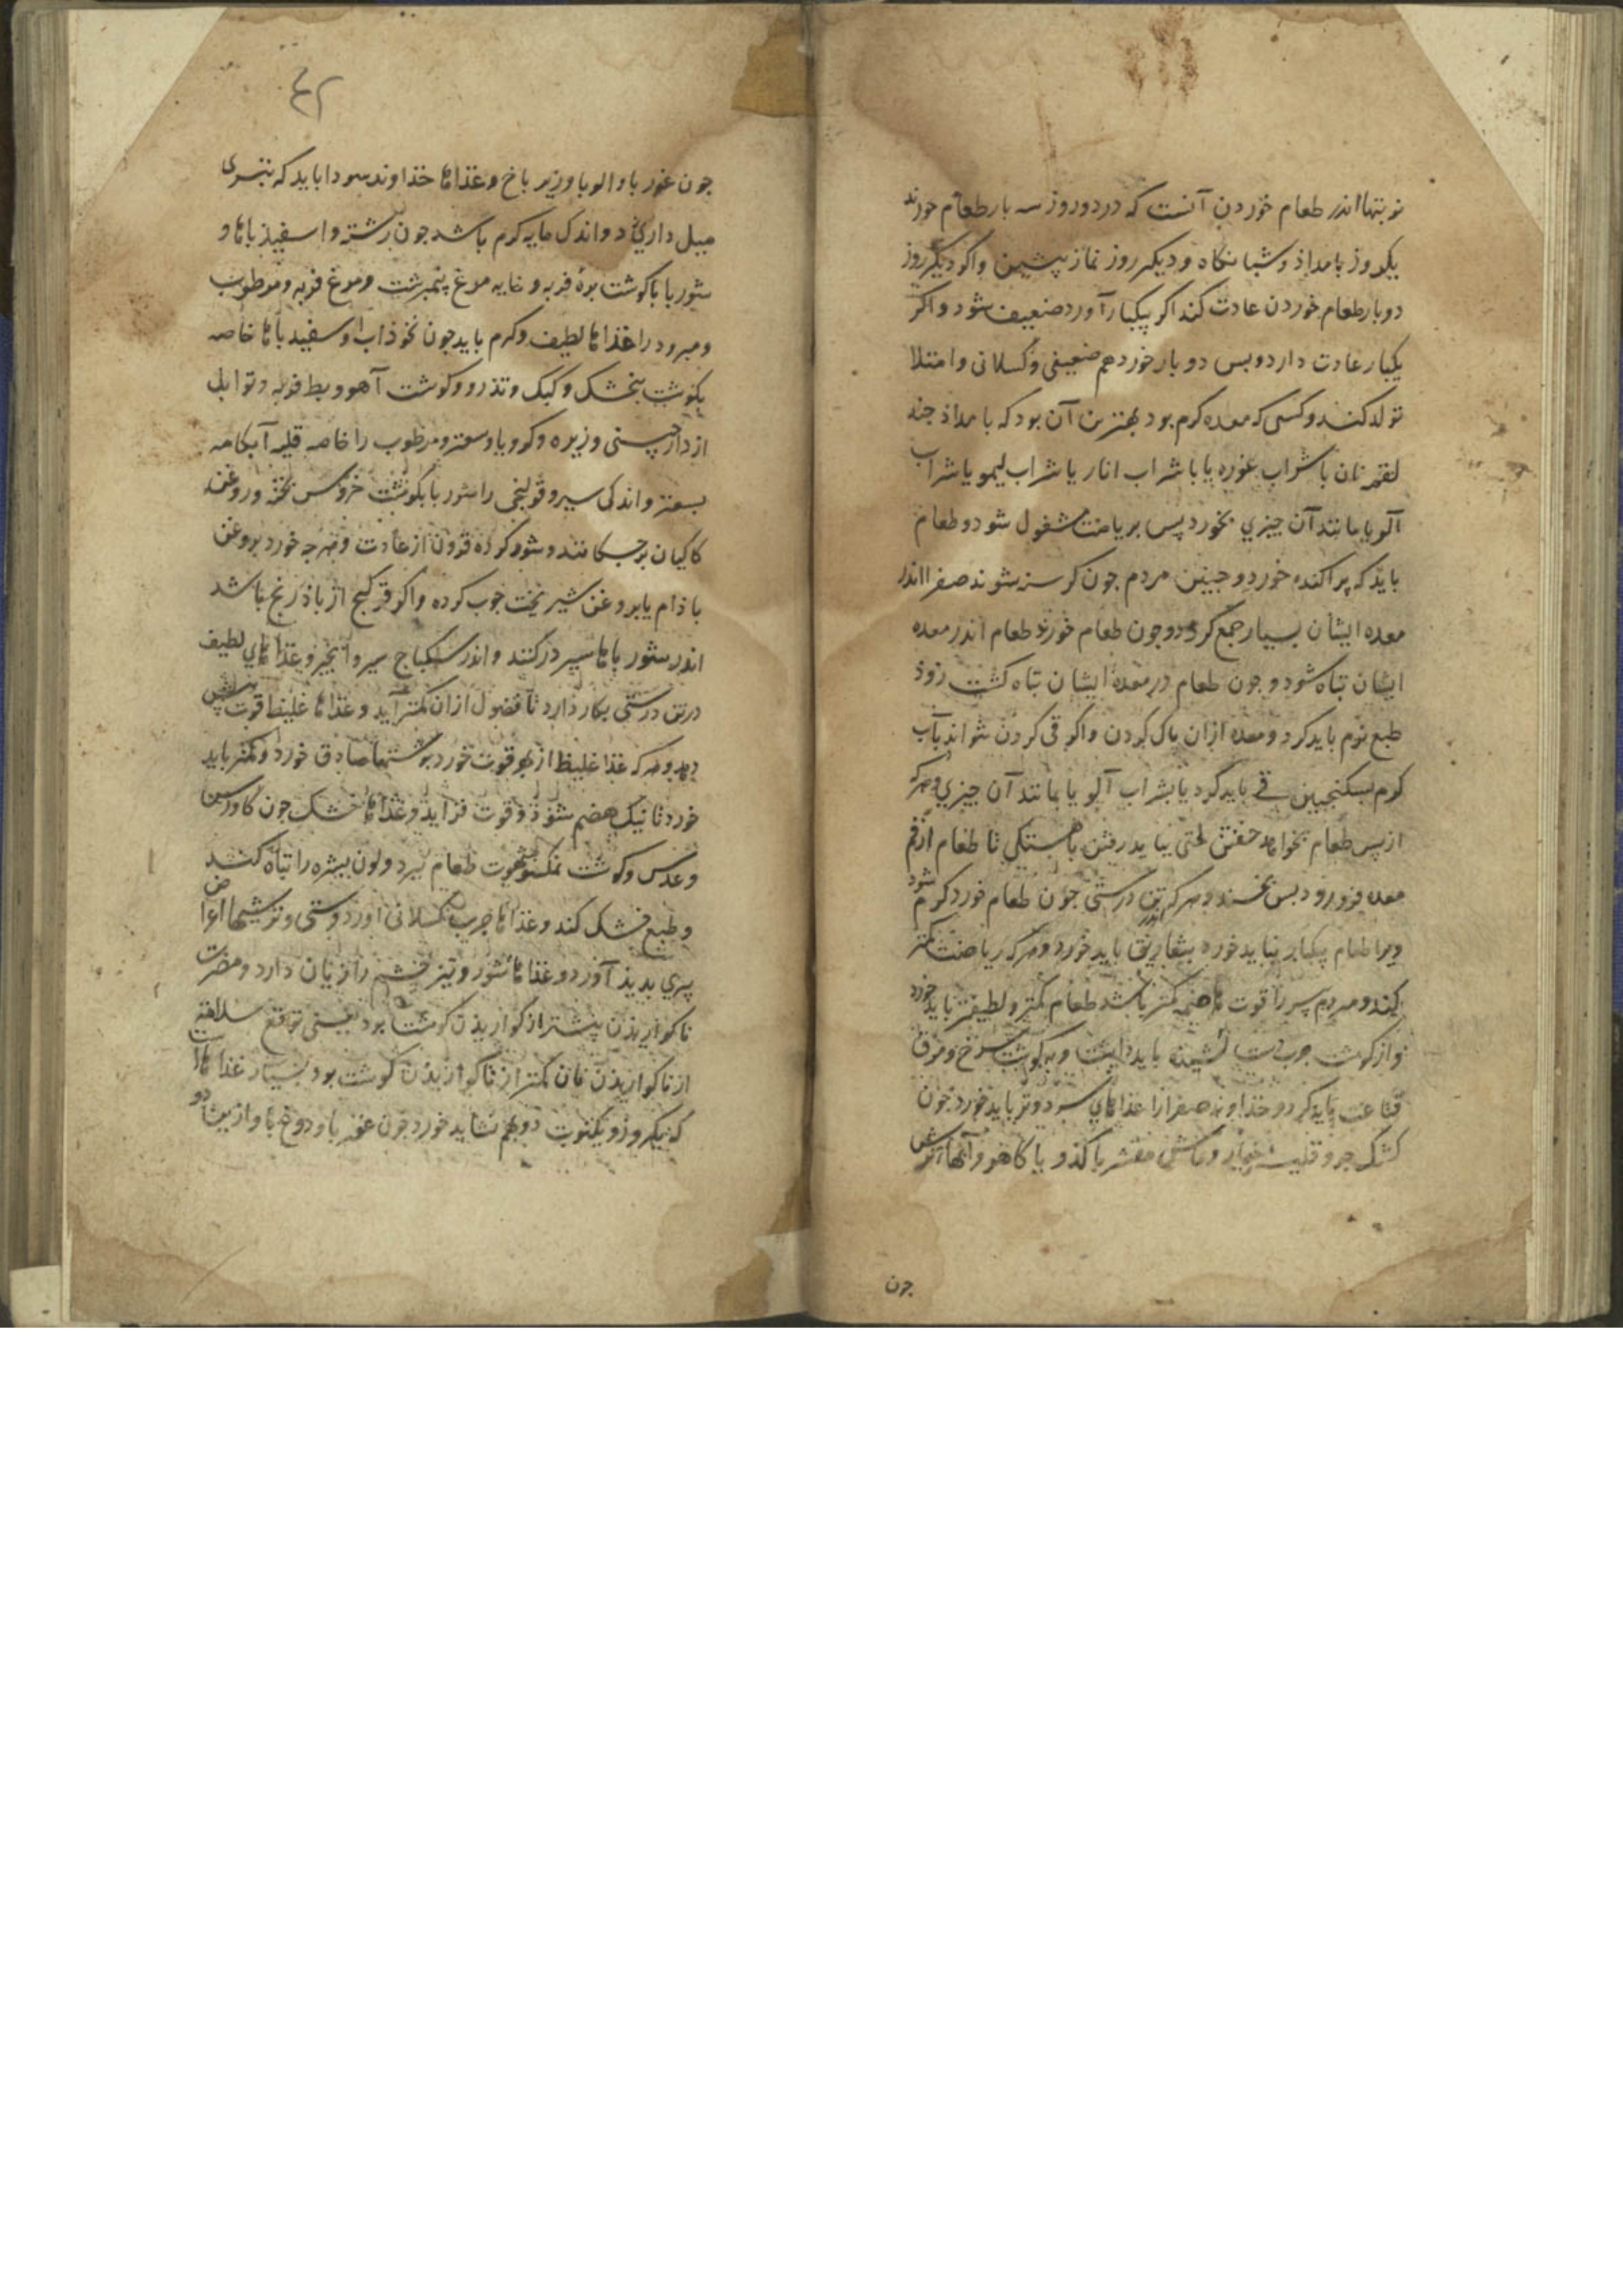 نوبتها اندر طعام خوردن آنست که در دو روز سه بار طعام خورند
یکروز بامداذ و شبانکاه و دیکر روز نماز پیشین واکر دیکر روز
دوبار طعام خوردن عادت کند اکر بیکبار آورد ضعیف شود واکر
یکبار عادت دارد وبس دو بار خورد هم ضعیفی وکسلانی وامتلا
تولد کند وکسی که معده کرم بود بهترین آن بود که بامداذ جند
لقمه نان باشراب غوره یا باشراب انار یا شراب لیمو یا شراب
آلو یا مانند آن جیزي بخورد پس بریاضت مشغول شود وطعام
بایذ که پراکنده خورد وجنین مردم جون کرسنه شوند صفرا اندر
معده ایشان بسیار جمع کردد وجون طعام خورند طعام اندر معده
ایشان تباه شود وجون طعام در معده ایشان تباه کشت زوذ
طبع نرم باید کرد ومعده ازان پاک کردن واکر قی کردن تواند بآب
کرم وسکنجبین قی باید کرد یا بشراب آلو یا مانند آن جیزي وهرکه
از پس طعام بخواهد خفتن لختی بباید رفتن باهستکی تا طعام از فم
معده فرو رود بس بخسبد وهرکه تن درستی جون طعام خورد کرم شود
ویرا طعام بیکبار نباید خورد بتفاریق باید خورد وهرکه ریاضت کمتر
کند ومردم پیر را قوت هاضمه کمتر باشد طعام کمتر ولطیفتر باید خورد
واز کوشت جرب دست باید داشت وبه کوشت سرخ ومرق
قناعت باید کرد وخذاوند صفرا را غذاهاي سرد وتر باید خورد جون
کشک جو وقلیه خیار وماش مقشر باکذو یا کاهو وآنها ترش
جون
۴۲
جون غوربا والوبا وزیرباخ وغذاها خذاوند سودا باید که بتری
میل دارد واندک مایه کرم باشد جون رشته واسفیذباها و
شوربا باکوشت برهٔ فربه وخایه مرغ نیمبرشت ومرغ فربه ومرطوب
ومبرود را غذاها لطیف وکرم باید جون نخوذاب واسفیدباها خاصه
بکوشت بنجشک وکبک وتذرو وکوشت آهو وبط فربه وتوابل
از دارجینی وزیره وکرویا وسعتر ومرطوب را خاصه قلیه آبکامه
بسعتر واندکی سیر وقولنجی را شوربا بکوشت خروس بخته وروغن
کاکیان برجکانند وشور کرده فزون از عادت وهرجه خورد بروغن
باذام یا بروغن شیر بخت جرب کرده واکر از باذ رنج باشد
اندر شورباها سیر درکنند واندر سکباج سیر وانجیر وغذاهاي لطیف
درتن درستی بکار دارد تا فضول ازان کمتر آید وغذاها غلیظ قوت بیش
دهد وهرکه غذا غلیظ از بهر قوت خورد باشتها صادق خورد وکمتر باید
خورد تا نیک هضم شوذ وقوت فزاید وغذاها خشک جون کاورس
وعدس وکوشت نمکسود شهوت طعام ببرد ولون بشره را تباه کند
وطبع خشک کند وغذاها جرب کسلانی آورد وسستی وترشیها اعراض
پیري بدیذ آورد وغذاها شور وتیز جشم را زیان دارد ومضرت
ناکواریذن بیشتر از کواریذن کوشت بود یعنی توقع سلامت
از ناکواریذن نان کمتر از ناکواریذن کوشت بود بسیار غذاهاست
که بیکروز وبیکنوبت دو بهم نشاید خورد جون غوربا ودوغبا واز میان دو